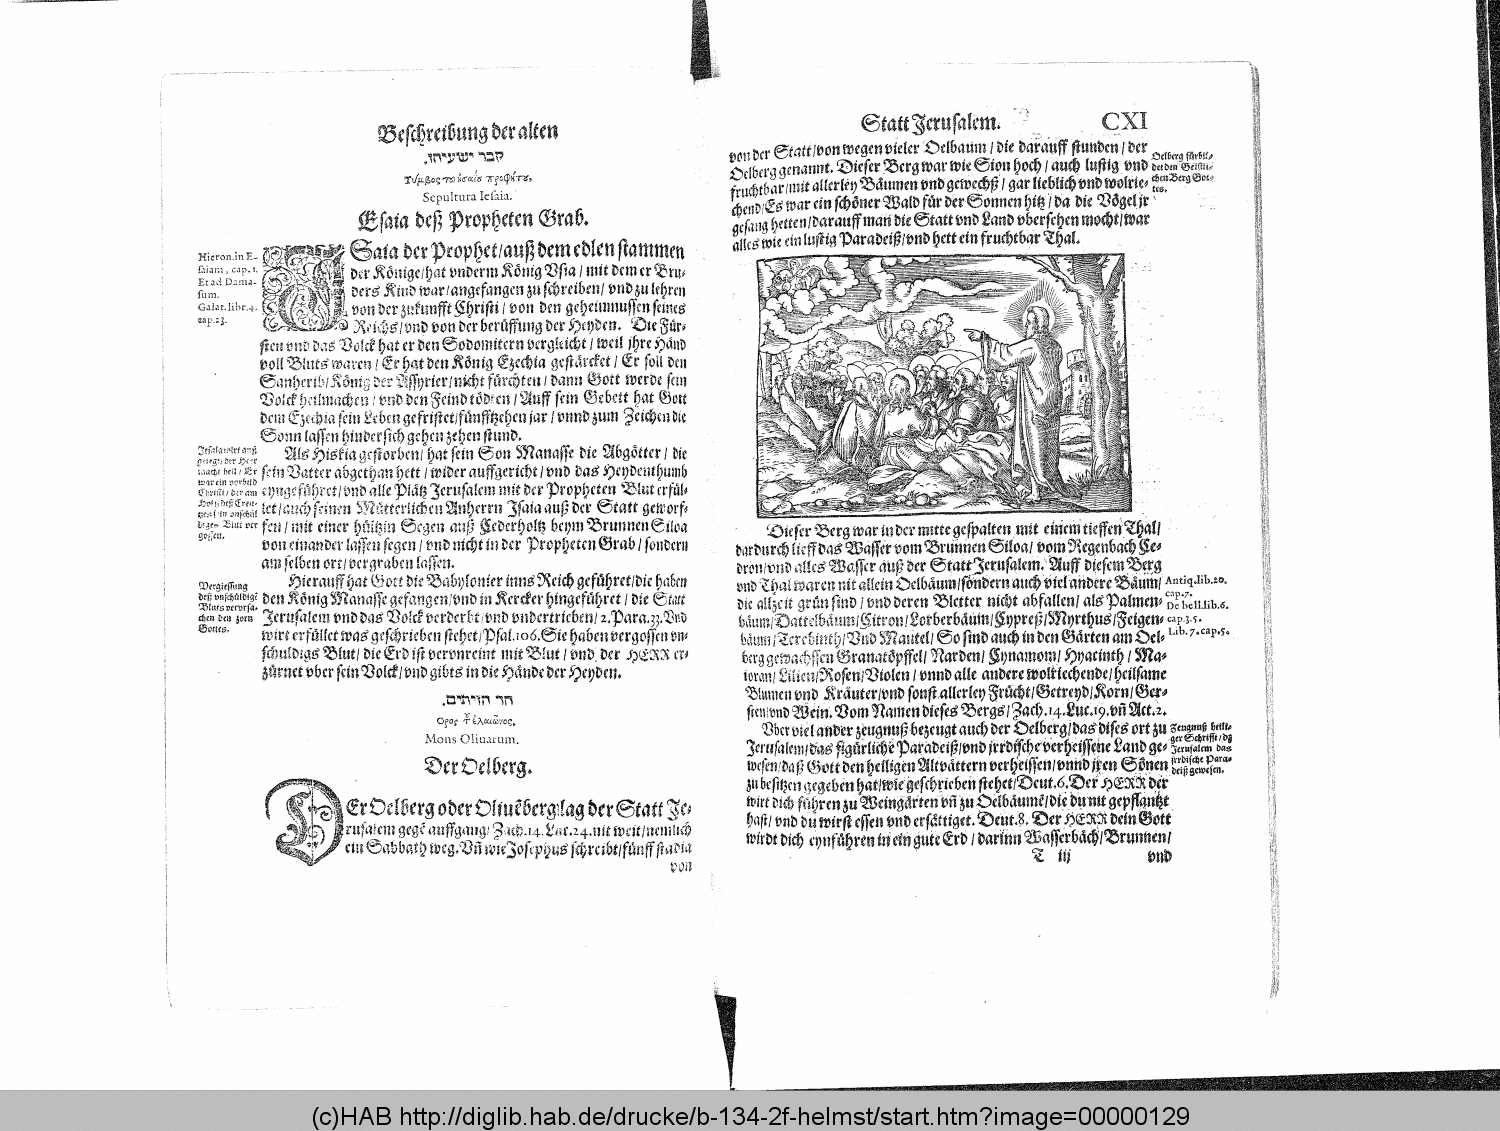 Beschreibung der alten
קבר ישעיהו.
Sepultura Iesaia.
Esaia deß Propheten Grab.
Hieron. in E-
saiam, cap. 1.
Et ad Dama-
sum.
Galat. libr. 4.
cap. 23.
Saia der Prophet/auß dem edlen stammen
der Könige/hat vnderm König Vsia / mit dem er Bru-
ders Kind war/angefangen zu schreiben/ vnd zu lehren
von der zukunfft Christi / von den geheimnussen seines
Reichs/vnd von der berüffung der Heyden. Die Für-
sten vnd das Volck hat er den Sodomitern vergleicht / weil ihre Händ
voll Bluts waren / Er hat den König Ezechia gestärcket / Er soll den
Sanherib/König der Assyrier/nicht fürchten / dann Gott werde sein
Volck heilmachen / vnd den Feind tödten / Auff sein Gebett hat Gott
dem Ezechia sein Leben gefristet/fünfftzehen jar / vnnd zum Zeichen die
Sonn lassen hindersich gehen zehen stund.
Als Hiskia gestorben/ hat sein Son Manasse die Abgötter / die
sein Vatter abgethan hett / wider auffgericht / vnd das Heydenthumb
eyngeführet/vnd alle Plätz Jerusalem mit der Propheten Blut erfül-
let/auch seinen Mütterlichen Anherrn Isaia auß der Statt geworf-
fen / mit einer hültzin Segen auß Cederholtz beym Brunnen Siloa
von einander lassen segen / vnd nicht in der Propheten Grab / sondern
am selben ort/ vergraben lassen.
Vergiessung
deß vnschüldigē
Bluts verorsa-
chen den zorn
Gottes.
Hierauff hat Gott die Babylonier inns Reich geführet/die haben
den König Manasse gefangen/vnd in Kercker hingeführet / die Statt
Jerusalem vnd das Volck verderbt/vnd vndertrieben/ 2. Para. 33. Vnd
wirt erfüllet was geschrieben stehet/Psal. 106. Sie haben vergossen vn-
schuldigs Blut/ die Erd ist verunreint mit Blut / vnd der HERR er-
zürnet vber sein Volck/ vnd gibts in die Hände der Heyden.
הר הזיתים.
Ορος τ̃ ἐλαιῶνος.
Mons Oliuarum.
Der Oelberg.
DEr Oelberg oder Oliuēberg/lag der Statt Je-
rusalem gegē auffgang/ Zach. 14. Luc. 24. nit weit/nemlich
ein Sabbath weg. Vn̄ wie Josephus schreibt/fünff stadia
von
Statt Jerusalem. CXI
von der Statt/von wegen vieler Oelbaum / die darauff stunden / der
Oelberg genannt. Dieser Berg war wie Sion hoch / auch lustig vnd
fruchtbar/mit allerley Bäumen vnd gewechß / gar lieblich vnd wolrie-
chend/Es war ein schöner Wald für der Sonnen hitz / da die Vögel jr
gesang hetten/darauff man die Statt vnd Land vbersehen mocht/war
alles wie ein lustig Paradeiß/vnd hett ein fruchtbar Thal.
Oelberg fürbil-
det den Geistli-
chen Berg Got-
tes.
Dieser Berg war in der mitte gespalten mit einem tieffen Thal/
dardurch lieff das Wasser vom Brunnen Siloa/ vom Regenbach Ce-
dron/vnd alles Wasser auß der Statt Jerusalem. Auff diesem Berg
vnd Thal waren nit allein Oelbäum/sondern auch viel andere Bäum/
die allzeit grün sind / vnd deren Bletter nicht abfallen/ als Palmen-
bäum/Dattelbäum/Citron/Lorberbäum/Cypreß/Myrthus/Feigen-
bäum/Terebinth/Vnd Mautel/ So sind auch in den Gärten am Oel-
berg gewachssen Granatöpffel/ Narden/ Cynamom/ Hyacinth / Ma-
ioran/Lilien/Rosen/Violen / vnnd alle andere wolriechende/heilsame
Blumen vnd Kräuter/vnd sonst allerley Frücht/Getreyd/Korn/Ger-
sten/vnd Wein. Vom Namen dieses Bergs/ Zach. 14. Luc. 19. vn̄ Act. 2.
Antiq. lib. 20.
cap. 7.
De bell. lib. 6.
cap. 3. 5.
Lib. 7. cap. 5.
Vber viel ander zeugnuß bezeugt auch der Oelberg/das dises ort zu
Jerusalem/das figürliche Paradeiß/vnd jrrdische verheissene Land ge-
wesen/daß Gott den heiligen Altvättern verheissen/ vnnd jren Sönen
zu besitzen gegeben hat/wie geschrieben stehet/Deut. 6. Der HERR der
wirt dich führen zu Weingärten vn̄ zu Oelbäumē/die du nit gepflantzt
hast/ vnd du wirst essen vnd ersättiget. Deut. 8. Der HERR dein Gott
wirdt dich eynführen in ein gute Erd / darinn Wasserbäch/ Brunnen/
Zeugnuß heili-
ger Schrifft/ dz
Jerusalem das
jrrdische Para-
deiß gewesen.
T iij vnd
(c)HAB http://diglib.hab.de/drucke/b-134-2f-helmst/start.htm?image=00000129